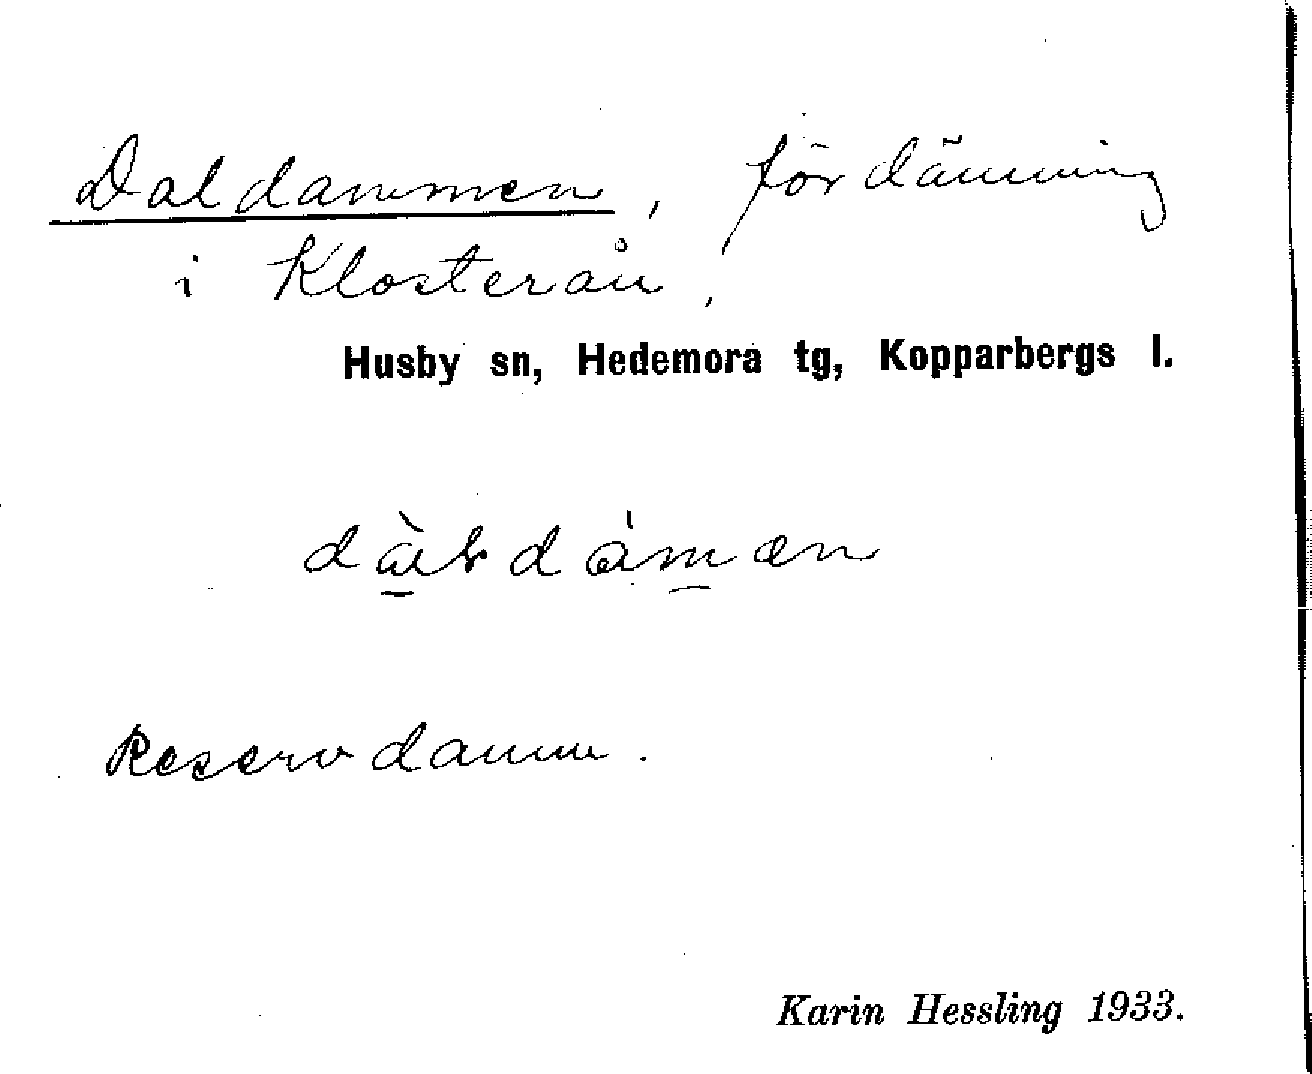 Daldammen, fördämning
i Klosterån,
Husby sn, Hedemora tg, Kopparbergs l.
Reservdamm.
Karin Hessling 1933.